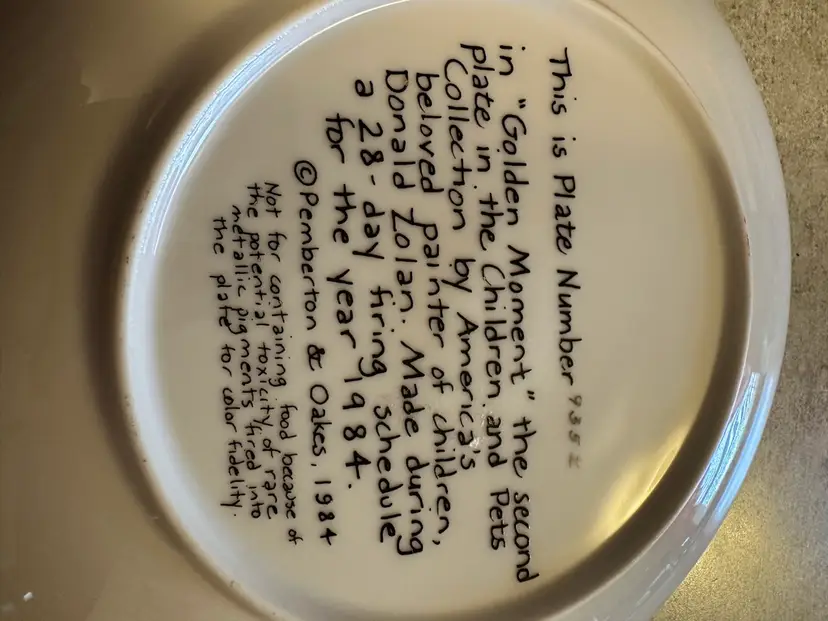 This is Plate Number
in "Golden Moment" the second
plate in the Children and Pets
Collection by America's
beloved painter of children,
Donald Zolan. Made during
a 28-day firing schedule
for the year 1984.
©Pemberton & Oakes, 1984
Not for containing food because of
the potential toxicity of rare
metallic pigments fired into
the plate for color fidelity.